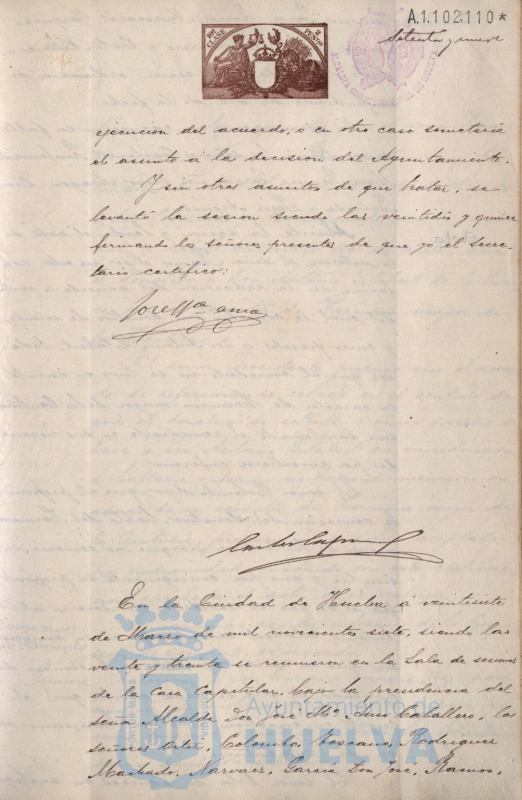 A.1.102.110*
Setenta y nueve
10ª CLASE
2 PESETAS
ejecucion del acuerdo, ó en otro caso someteria
el asunto á la decision del Ayuntamiento.
Y sin otros asuntos de que tratar, se
levantó la sesion siendo las veintidos y quince
firmando los señores presentes de que yo el Secre-
tario certifico:
En la Ciudad de Huelva á veintisiete
de Marzo de mil novecientos siete, siendo las
veinte y treinta se reunieron en la Sala de sesiones
de la Casa Capitular, bajo la presidencia del
señor Alcalde Don José Mª Amo Caballero, los
señores Ortiz, Colombo, Toscano, Rodriguez
Machado, Narvaez, Garcia Don José, Ramos,
Ayuntamiento de
HUELVA